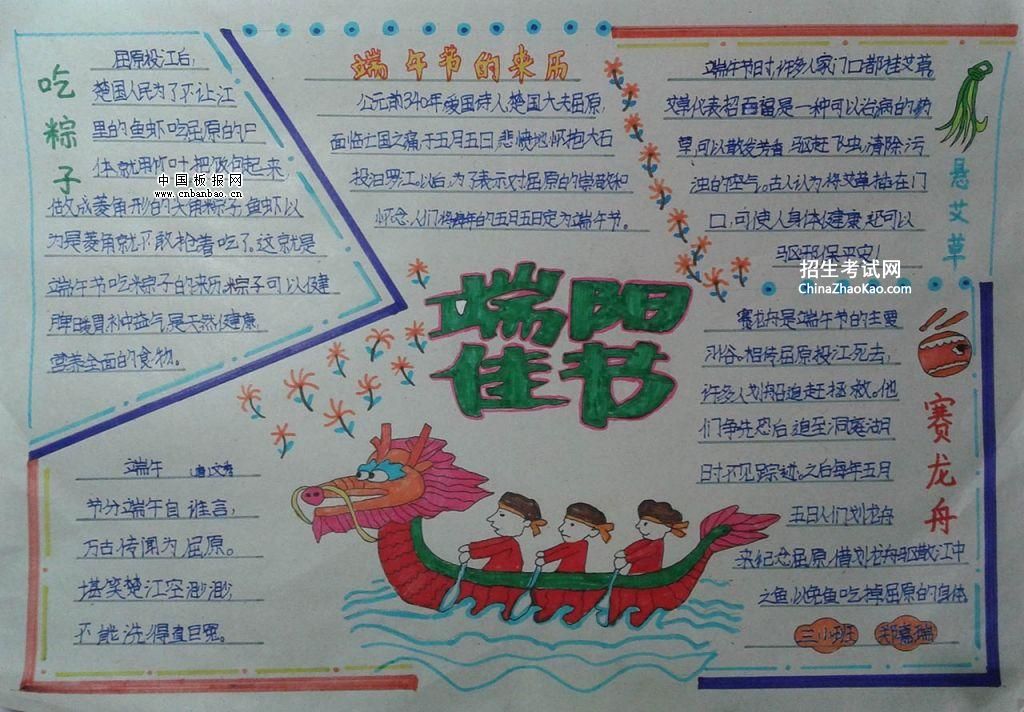 吃粽子
屈原投江后,
楚国人民为了不让江
里的鱼虾吃屈原的尸
体,就用竹叶把饭包起来,
做成菱角形的尖角粽子,鱼虾以
为是菱角就不敢抢着吃了。这就是
端午节吃粽子的来历。粽子可以健
脾暖胃补中益气,是天然健康,
营养全面的食物。
中国板报网
www.cnbanbao.cn
端午节的来历
公元前340年爱国诗人楚国大夫屈原,
面临亡国之痛于五月五日,悲愤地怀抱大石
投汨罗江。以后,为了表示对屈原的崇敬和
怀念,人们将每年的五月五日定为端午节。
悬艾草
端午节时,许多人家门口都挂艾草。
艾草代表招百福是一种可以治病的药
草,可以散发芳香,驱赶飞虫,清除污
浊的空气。古人认为将艾草插在门
口,可使人身体健康,还可以
驱邪保平安!
招生考试网
ChinaZhaoKao.com
端阳
佳节
赛龙舟
赛龙舟是端午节的主要
习俗。相传屈原投江死去,
许多人划船追赶拯救。他
们争先恐后,追至洞庭湖
时不见踪迹。之后每年五月
五日人们划龙舟
来纪念屈原,借划龙舟驱散江中
之鱼,以免鱼吃掉屈原的身体
三小班 郑嘉瑞
端午 (唐)文秀
节分端午自谁言,
万古传闻为屈原。
堪笑楚江空渺渺,
不能洗得直臣冤。